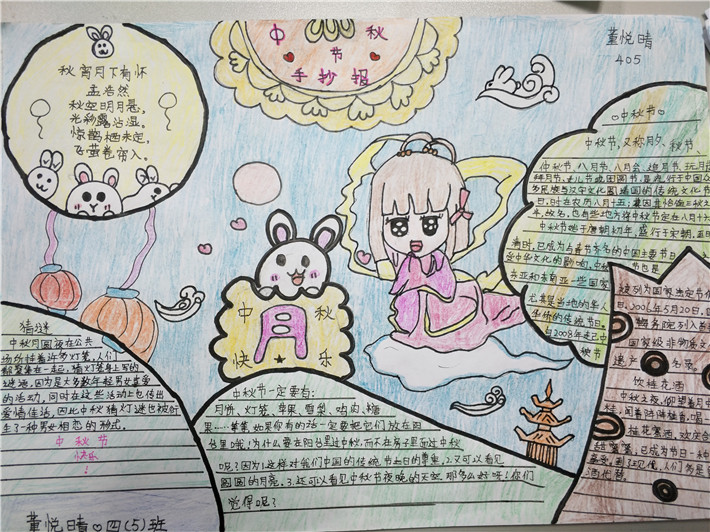 中秋节
手抄报
董悦晴
405
秋宵月下有怀
孟浩然
秋空明月悬,
光彩露沾湿。
惊鹊栖未定,
飞萤卷帘入。
中秋
月
快乐
♡中秋节♡
中秋节,又称月夕、秋节、
仲秋节、八月节、八月会、追月节、玩月节
拜月节、女儿节或团圆节,是流行于中国众
多民族与汉字文化圈诸国的传统文化节
日,时在农历八月十五;因其恰值三秋之
半,故名,也有些地方将中秋节定在八月十六
中秋节始于唐朝初年,盛行于宋朝,至明
清时,已成为与春节齐名的中国主要节日
受中华文化的影响,中秋节也是
东亚和东南亚一些国家
尤其是当地的华人
华侨的传统节日。
自2008年起中
秋节
被列为国家法定节
日。2006年5月20日,国
务院列入首
国家级非物质文
遗产名录。
饮桂花酒
中秋之夜,仰望着月中
桂,闻着阵阵桂香,喝
桂花蜜酒,欢庆合
甜蜜蜜,已成为节日一种
享受。到了现代,人们多是
酒代替。
猜谜
中秋月圆夜在公共
场所挂着许多灯笼,人们
都聚集在一起,猜灯笼身上写的
谜语,因为是大多数年轻男女喜爱
的活动,同时在这些活动上也传出
爱情佳话,因此中秋猜灯谜也被衍
生了一种男女相恋的形式。
中秋节
快乐
!
中秋节一定要有:
月饼、灯笼、苹果、雪梨、鸡肉、糖
果……苹果,如果你有的话一定要把它们放在阳
台里哦!为什么要在阳台里过中秋,而不在房子里面过中秋
呢?因为1.这样对我们中国的传统节日的尊重,2.又可以看见
圆圆的月亮。3.还可以看见中秋节夜晚的天空,那多么好呀!你们
觉得呢?
董悦晴♡四(5)班